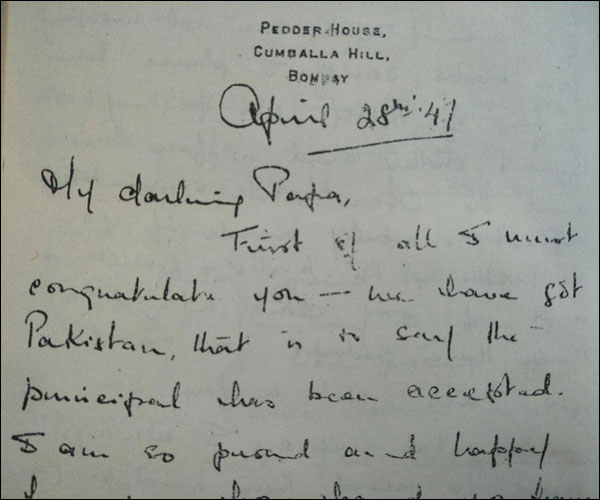 PEDDER HOUSE,
CUMBALLA HILL,
BOMBAY
April 28th '47
My darling Papa,
First of all I must
congratulate you — we have got
Pakistan, that is to say the
principal has been accepted.
I am so proud and happy